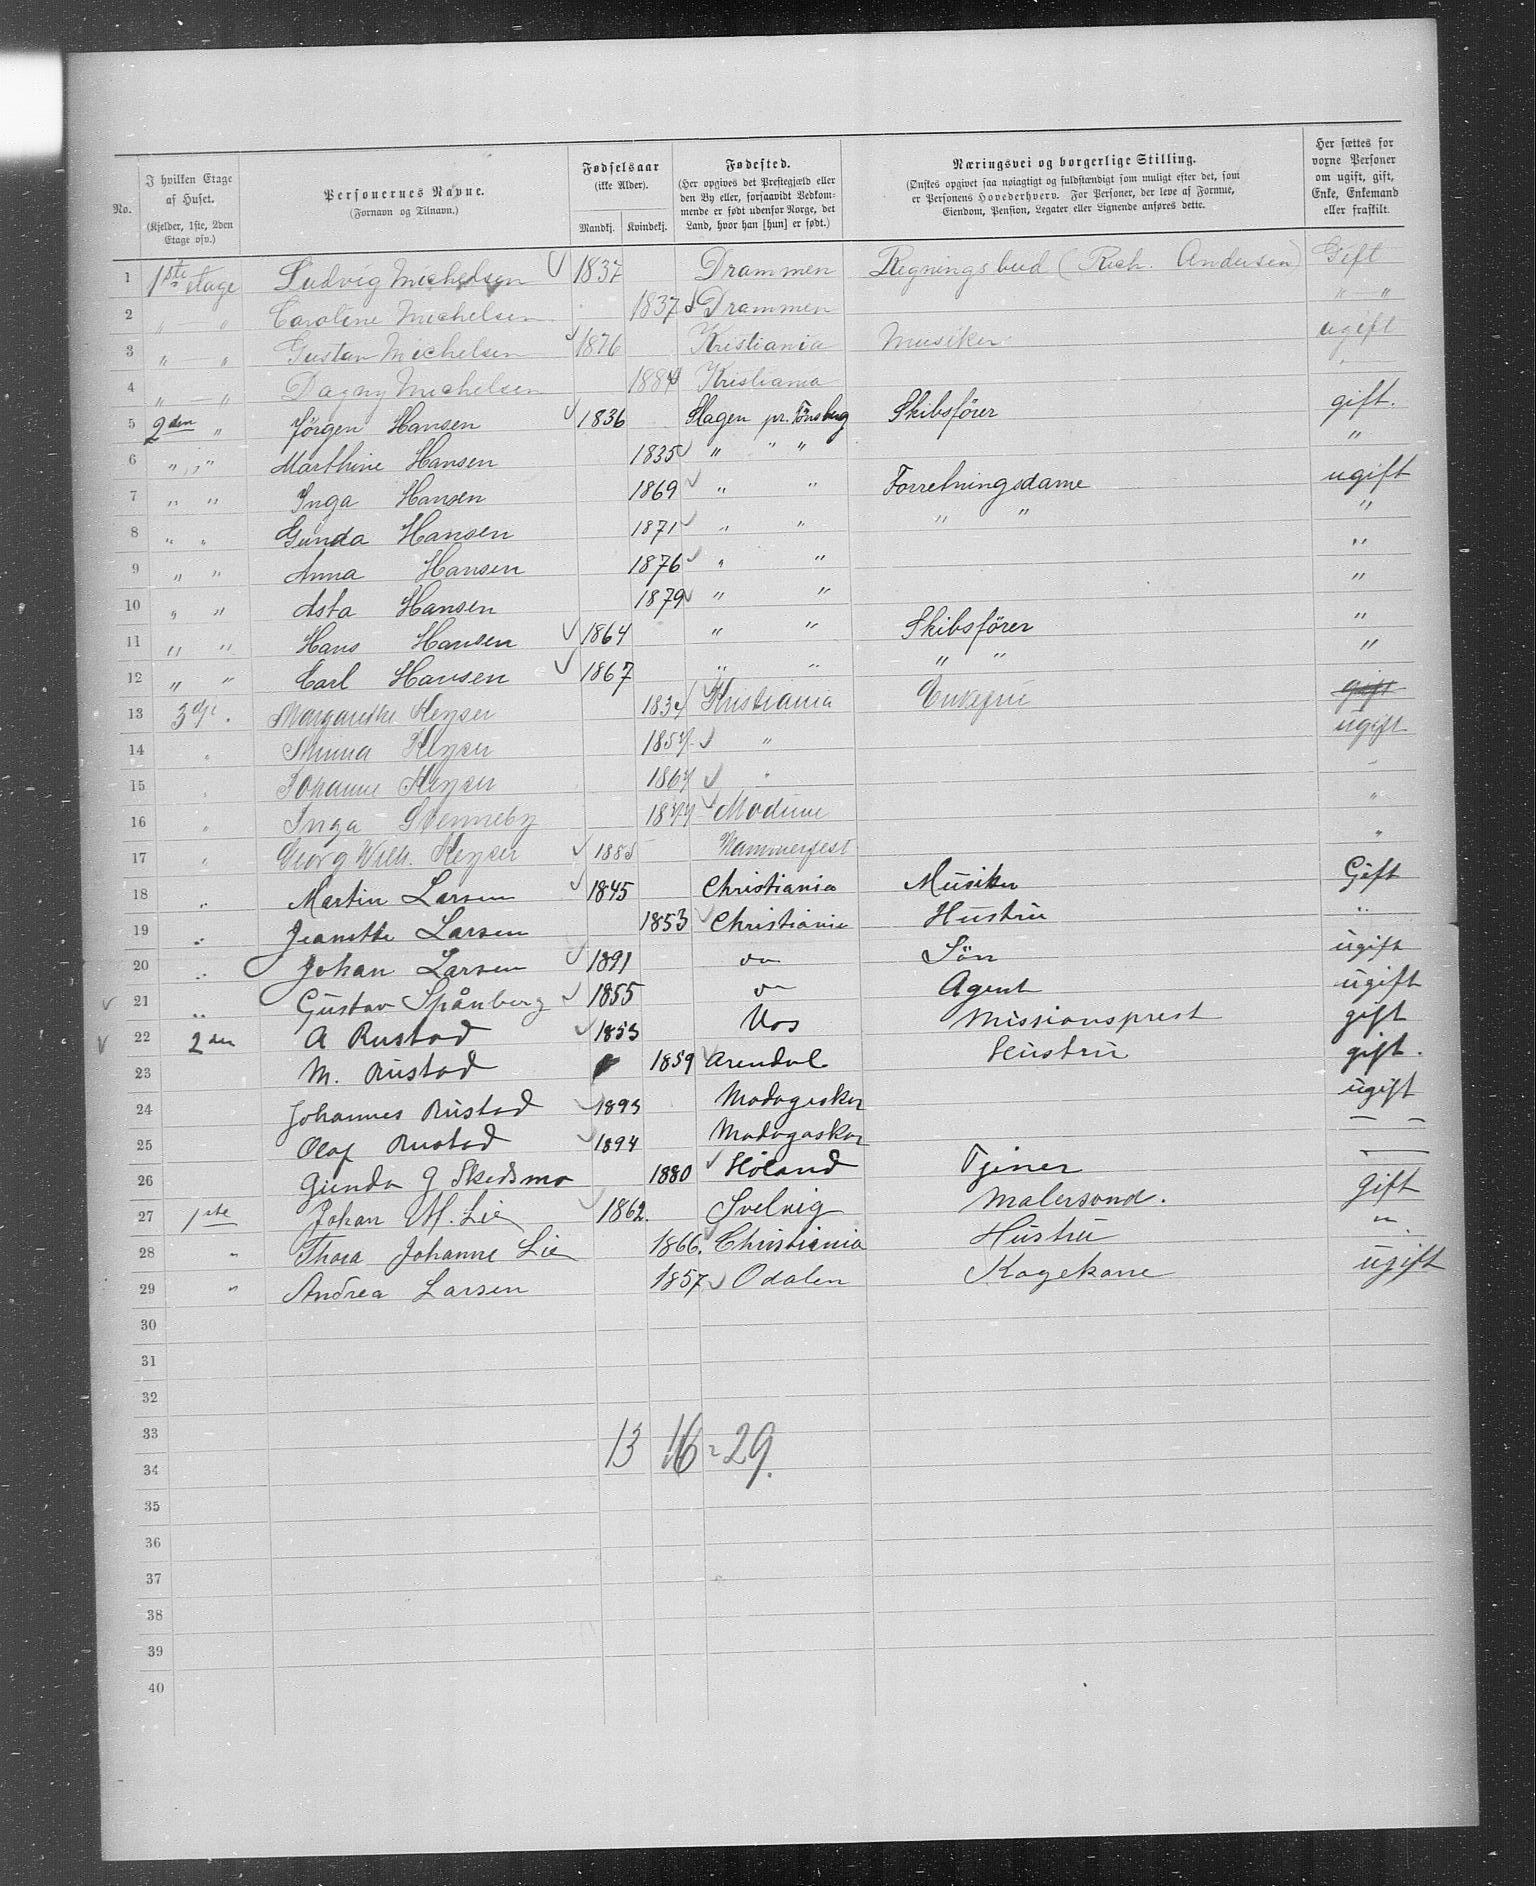 No. | I hvilken Etage af Huset. (Kjelder, 1ste, 2den Etage osv.) | Personernes Navne. (Fornavn og Tilnavn.) | Fødselsaar (ikke Alder). Mandkj. Kvindekj. | Fødested. (Her opgives det Prestegjæld eller den By eller, forsaavidt Vedkommende er født udenfor Norge, det Land, hvor han [hun] er født.) | Næringsvei og borgerlige Stilling. (Ønskes opgivet saa nøiagtigt og fuldstændigt som muligt efter det, som er Personens Hovederhverv. For Personer, der leve af Formue, Eiendom, Pension, Legater eller Lignende anføres dette. | Her sættes for voxne Personer om ugift, gift, Enke, Enkemand eller fraskilt.
1 1ste etage Ludvig Michelsen 1837 Drammen Regningsbud (Rich. Andersen) Gift
2 " — " Caroline Michelsen 1837 Drammen " — "
3 " " Gustav Michelsen 1876 Kristiania Musiker ugift
4 " — " Dagny Michelsen Kristiania "
5 2den " Jörgen Hansen 1836 Slagen pr. Tönsberg Skibsförer gift.
6 " " Marthine Hansen 1835 " " " "
7 " " Inga Hansen 1869 " " Forretningsdame ugift
8 " " Gunda Hansen 1871 " " " " "
9 " " Anna Hansen 1876 " " "
10 " " Asta Hansen 1879 " " "
11 " " Hans Hansen 1864 " " Skibsförer "
12 " " Carl Hansen 1867 " " " " "
13 3dje. Margarethe Keyser Kristiania Enkefrue gift
14 " Minna Keyser 1857 " ugift
15 " Johanne Keyser 1867 " "
16 " Inga 1877 Modum "
17 " Georg Wilh. Keyser Hammerfest "
18 " Martin Larsen 1845 Christiania Musiker Gift
19 " Jeanette Larsen 1853 Christiania Hustru "
20 " Johan Larsen 1891 do Sön ugift
21 " Gustav Spånberg 1855 do Agent ugift
22 2den A Rustad 1853 Vos Missionsprest gift
23 M. Rustad 1859 Arendal Hustru gift.
24 Johannes Rustad 1893 Madagaskar ugift
25 Olaf Rustad 1894 Madagaskar — —
26 Gunda G Skedsmo 1880 Höland Tjener —
27 1ste Johan M. Lie 1862. Svelvig Malersvend. gift
28 " Thora Johanne Lie 1866. Christiania Hustru "
29 " Andrea Larsen 1857 Odalen Kogekone ugift
30
31
32
33
13 16 = 29.
34
35
36
37
38
39
40